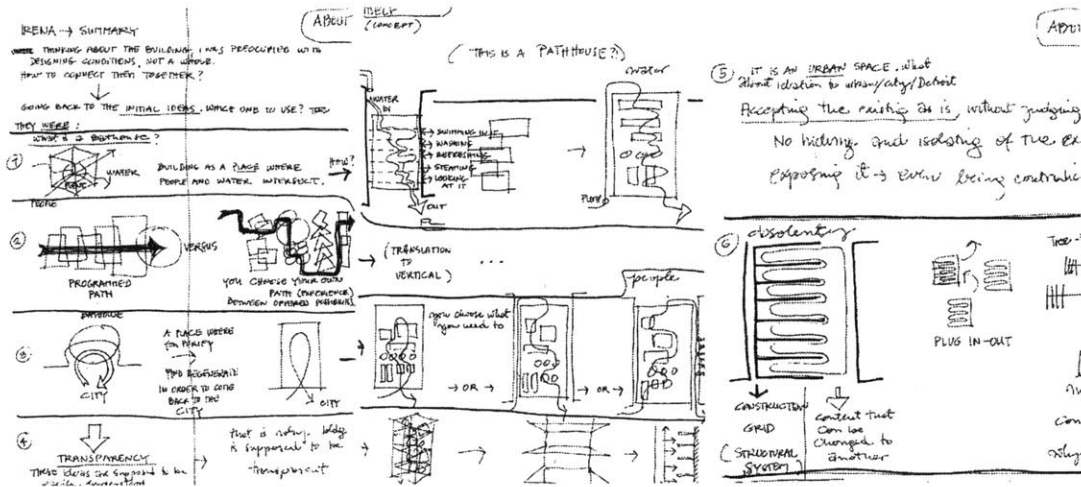 IRENA → SUMMARY
ABOUT
THINKING ABOUT THE BUILDING, I WAS PREOCUPIED WITH
DESIGNING CONDITIONS, NOT A WHOLE.
HOW TO CONNECT THEM TOGETHER?
GOING BACK TO THE INITIAL IDEAS. WHICH ONE TO USE?
THEY WERE:
WHAT IS A BATHHOUSE?
WATER
PEOPLE
BUILDING AS A PLACE WHERE
PEOPLE AND WATER INTERSECT.
HOW?
②
PROGRAMED
PATH
VERSUS
YOU CHOOSE YOUR OWN
PATH (EXPERIENCE)
BETWEEN OFFERED
③
BATHHOUSE
CITY
A PLACE WHERE
YOU PURIFY
AND REGENERATE
IN ORDER TO COME
BACK TO THE
CITY
CITY
④
TRANSPARENCY
THESE IDEAS ARE SUPPOSED TO BE
that is not
is supposed to be
transparent
(CONCEPT)
(THIS IS A PATHHOUSE?!)
WATER
IN
SWIMMING IN IT
WASHING
REFRESHING
STEAMING
LOOKING
AT IT
OUT
water
PUMP
(TRANSLATION
TO
VERTICAL) ...
people
you choose what
you need to
→ OR →
→ OR →
ABOU
⑤ IT IS AN URBAN SPACE. What
about relation to urban/city/Detroit
Accepting the existing as is, without judging
No hiding and isolating of the ex
exposing it → even being
⑥
PLUG IN-OUT
CONSTRUCTION
GRID
(STRUCTURAL
SYSTEM)
content that
can be
changed to
another
con
Why